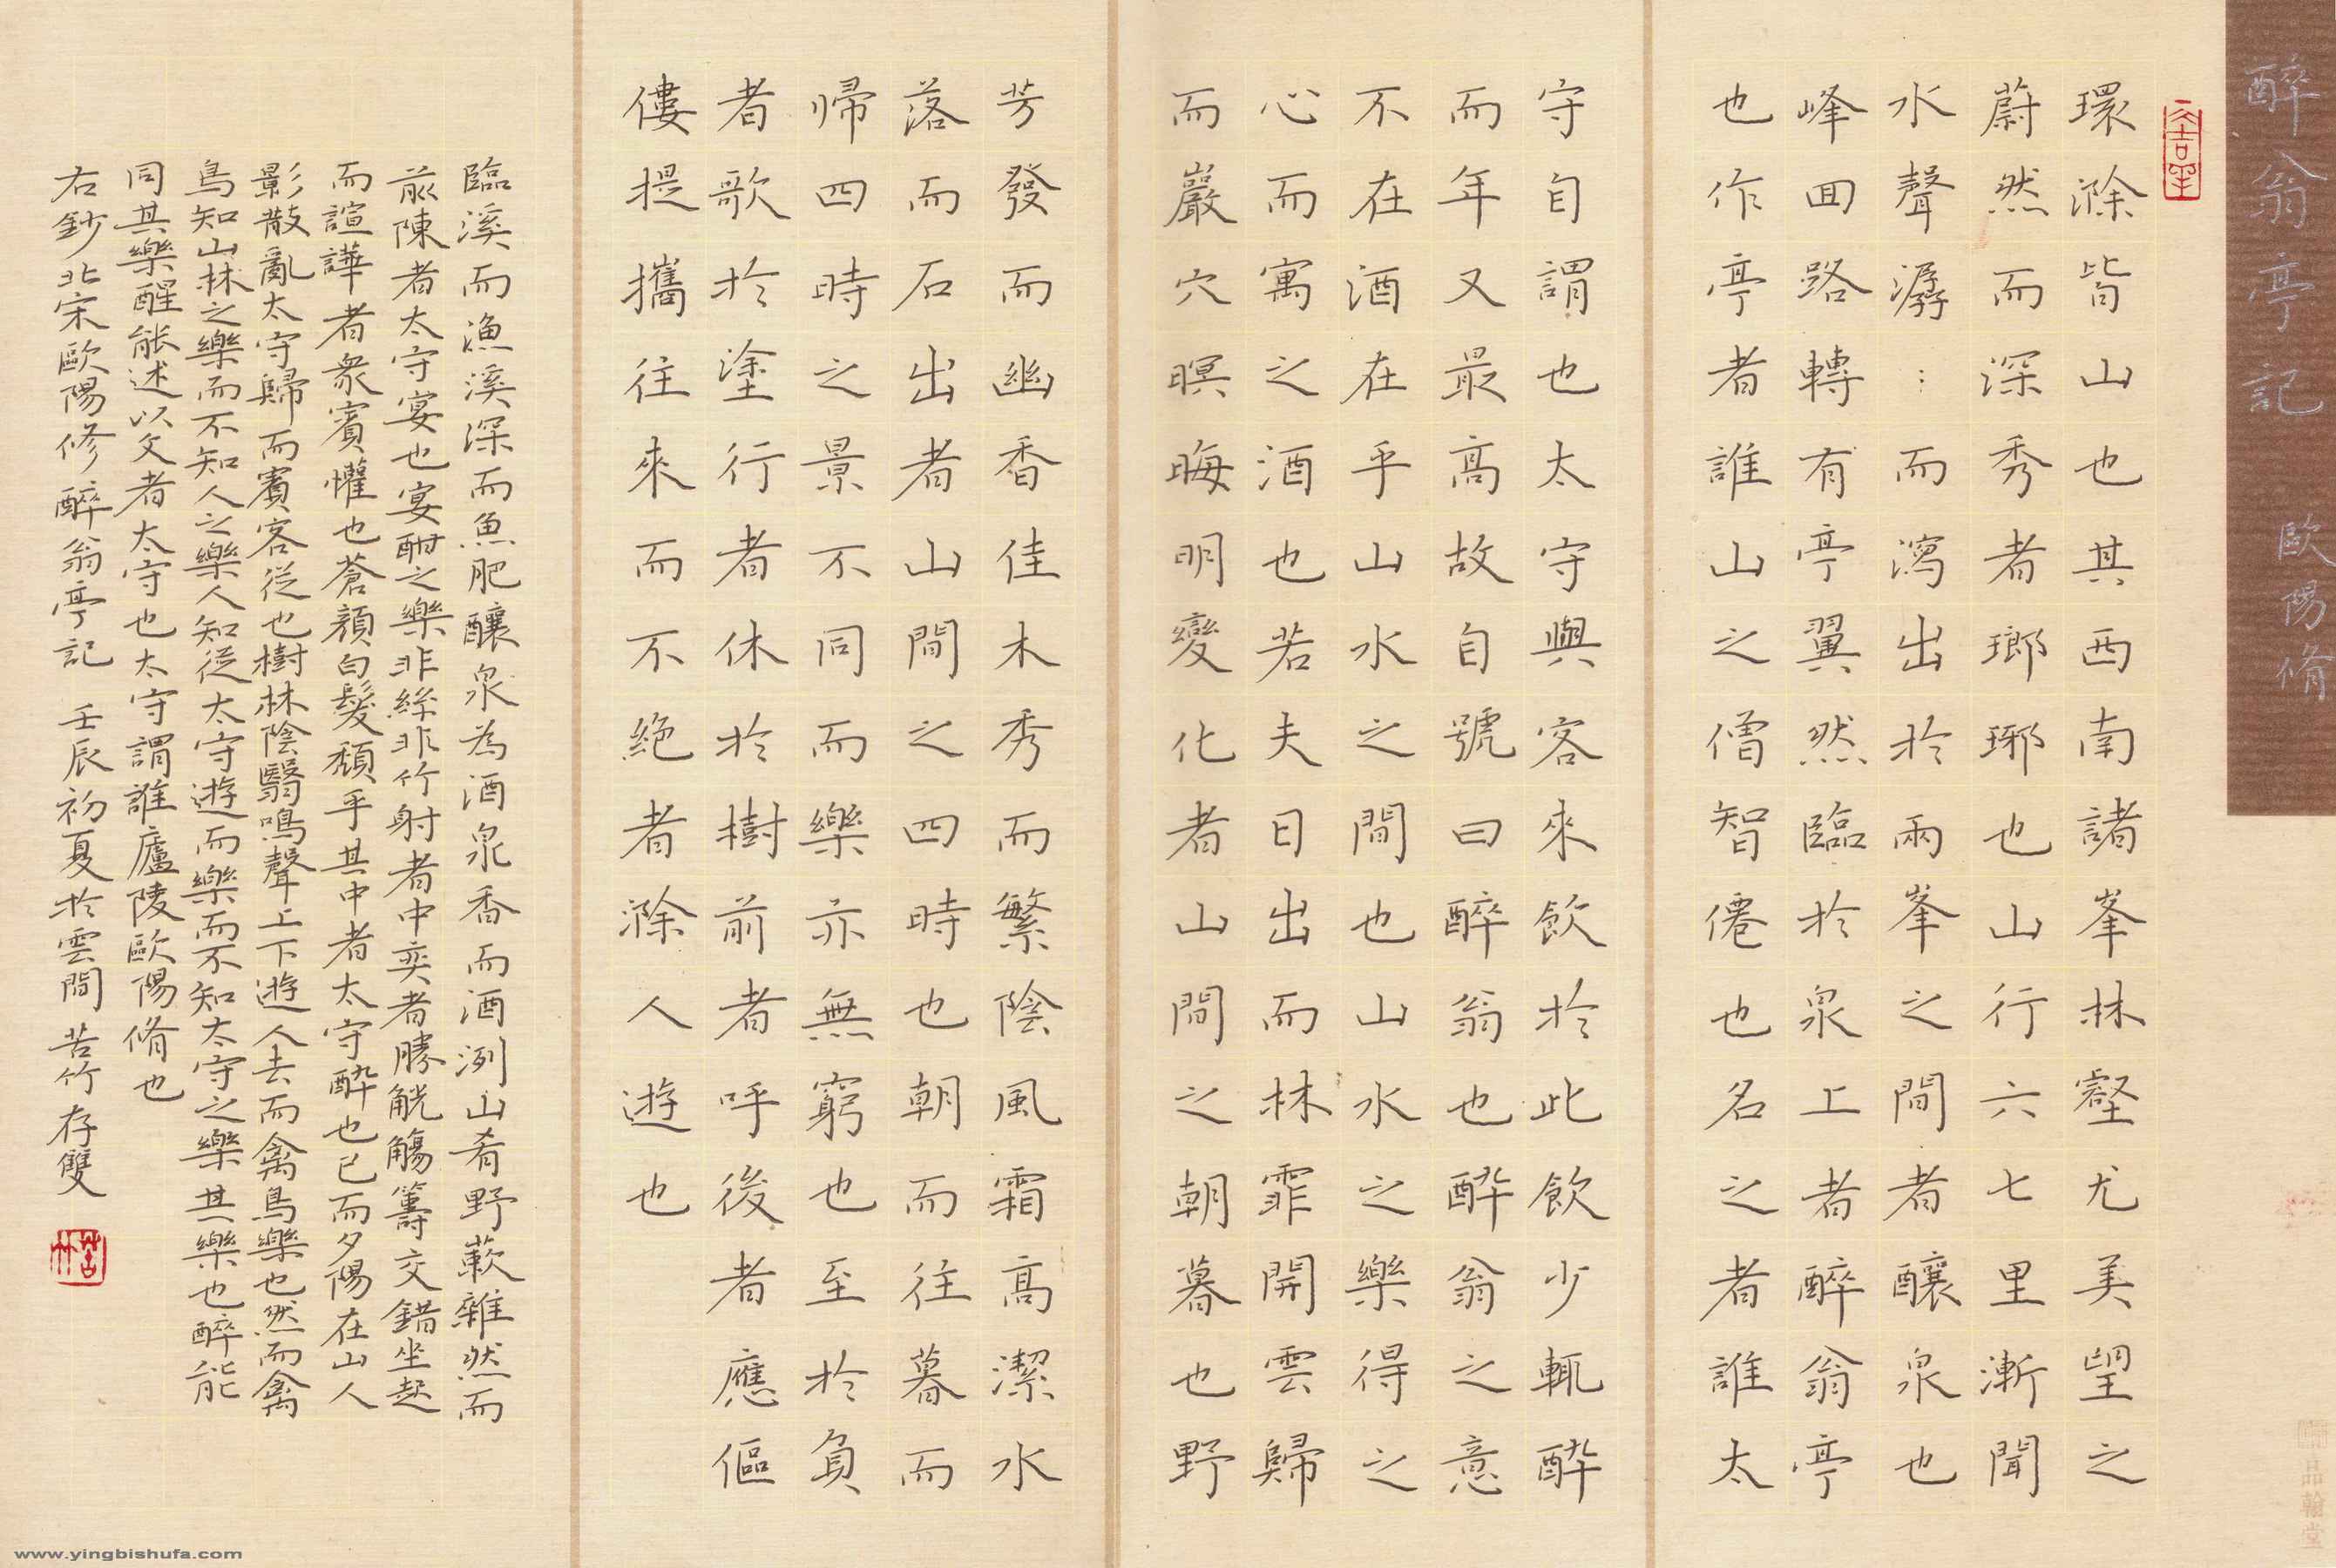 醉翁亭記 歐陽脩
環滁皆山也其西南諸峯林壑尤美望之
蔚然而深秀者瑯琊也山行六七里漸聞
水聲潺:而瀉出於兩峯之間者釀泉也
峰回路轉有亭翼然臨於泉上者醉翁亭
也作亭者誰山之僧智僊也名之者誰太
守自謂也太守與客來飲於此飲少輒酔
而年又最高故自號曰醉翁也酔翁之意
不在酒在乎山水之間也山水之樂得之
心而寓之酒也若夫日出而林霏開雲歸
而巖穴暝晦明變化者山間之朝暮也野
芳發而幽香佳木秀而繁陰風霜高潔水
落而石出者山間之四時也朝而往暮而
帰四時之景不同而樂亦無窮也至於負
者歌於塗行者休於樹前者呼後者應傴
僂提攜往來而不絶者滁人遊也
臨溪而漁溪深而魚肥釀泉為酒泉香而酒洌山肴野蔌雜然而
前陳者太守宴也宴酣之樂非絲非竹射者中奕者勝觥觴籌交錯坐起
而諠譁者衆賓懽也蒼顏白髮頹乎其中者太守酔也已而夕陽在山人
影散亂太守歸而賓客從也樹林陰翳鳴聲上下遊人去而禽鳥樂也然而禽
鳥知山林之樂而不知人之樂人知從太守遊而樂而不知太守之樂其樂也醉能
同其樂醒能述以文者太守也太守謂誰廬陵歐陽脩也
右鈔北宋歐陽修醉翁亭記 壬辰初夏於雲間苦竹存雙
苦竹
品翰堂
www.yingbishufa.com